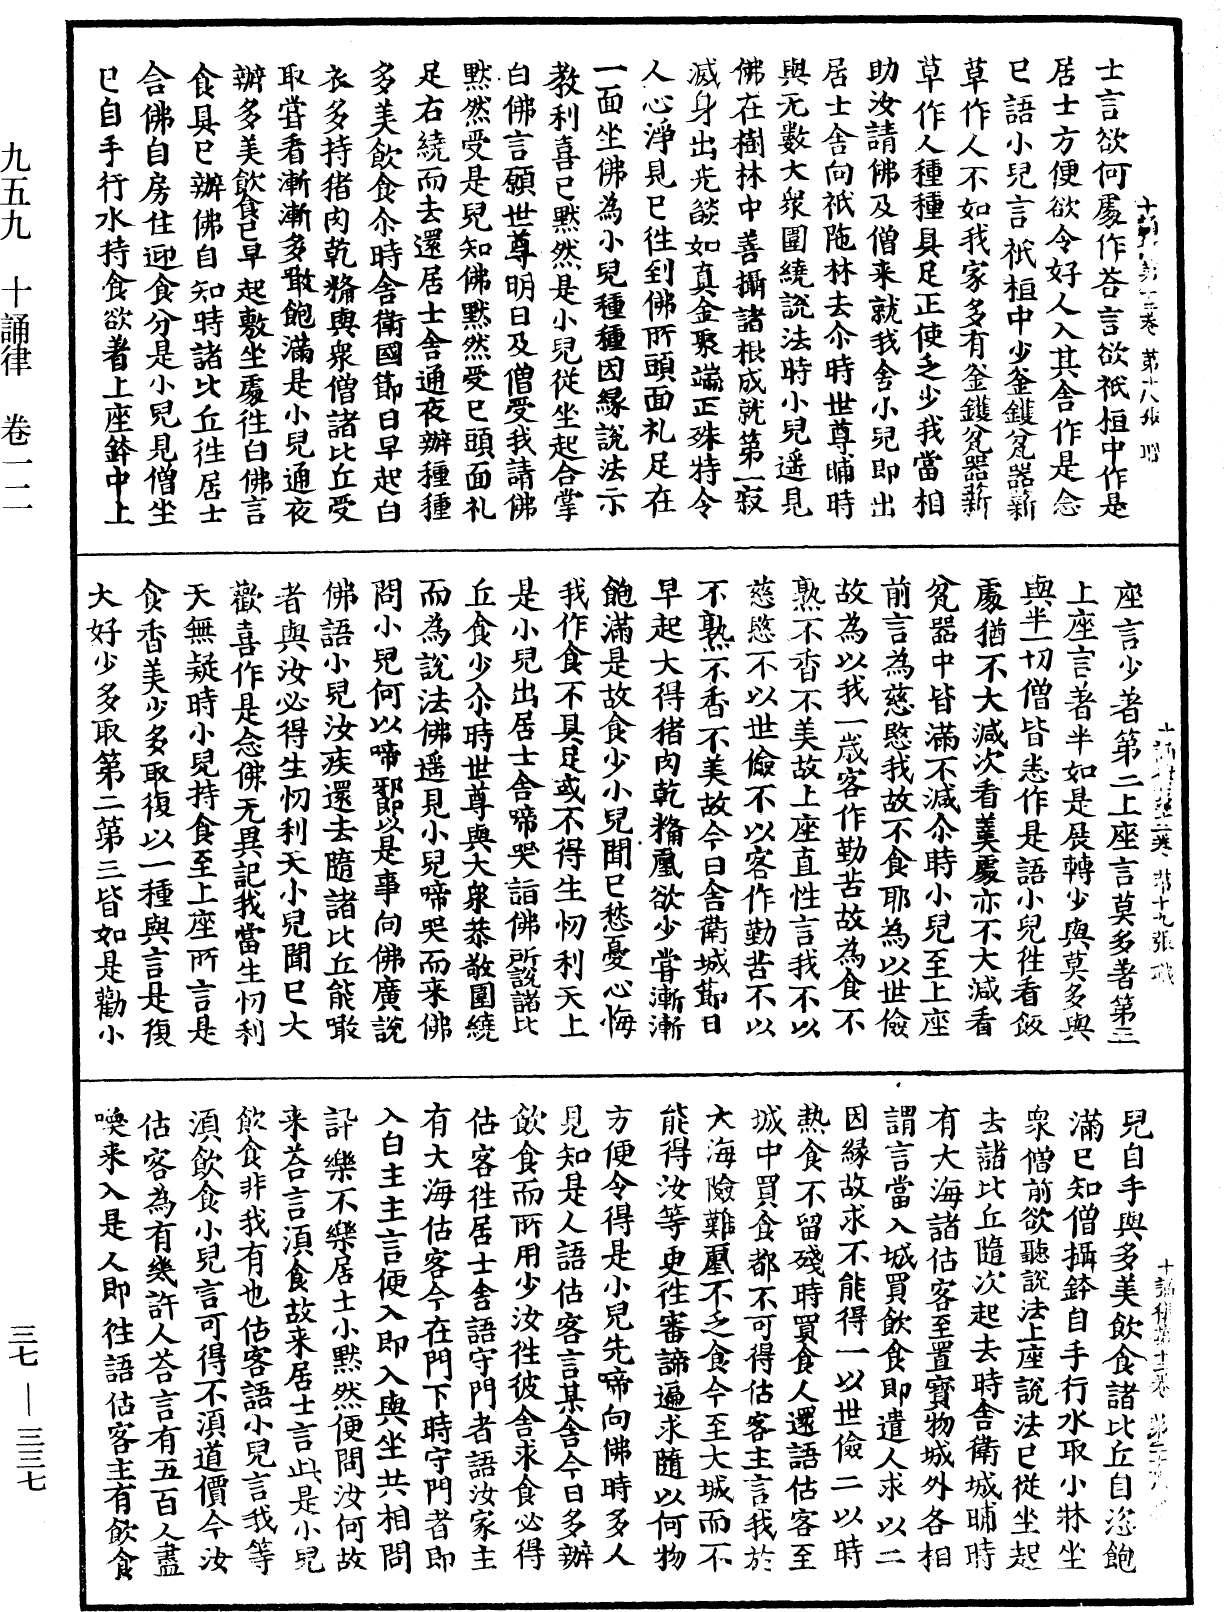 九五九　十誦律　卷一二
三七—三三七
士言欲何處作荅言欲祇桓中作是
居士方便欲令好人入其舍作是念
已語小兒言祇桓中少釜鑊瓫器薪
草作人不如我家多有釜鑊瓫器薪
草作人種種具足正使乏少我當相
助汝請佛及僧来就我舍小兒即出
居士舍向祇陁林去尒時世尊晡時
與无數大衆圍繞說法時小兒遥見
佛在樹林中善攝諸根成就第一寂
滅身出光𦦨如真金聚端正殊特令
人心淨見已往到佛所頭面礼足在
一面坐佛為小兒種種因緣說法示
教利喜已黙然是小兒從坐起合掌
白佛言願世尊明日及僧受我請佛
黙然受是兒知佛黙然受已頭面礼
足右繞而去還居士舍通夜辦種種
多美飲食尒時舍衛國節日早起白
衣多持猪肉乾糒與衆僧諸比丘受
取甞者漸漸多噉飽滿是小兒通夜
辦多美飲食已早起敷坐處往白佛言
食具已辦佛自知時諸比丘往居士
舍佛自房住迎食分是小兒見僧坐
已自手行水持食欲著上座鉢中上
座言少著第二上座言莫多著第三
上座言著半如是展轉少與莫多與
與半一切僧皆恙作是語小兒往看飯
處猶不大減次看羹處亦不大減看
瓫器中皆滿不減尒時小兒至上座
前言為慈愍我故不食耶為以世儉
故為以我一歳客作勤苦故為食不
熟不香不美故上座直性言我不以
慈愍不以世儉不以客作勤苦不以
不熟不香不美故今日舍衛城節日
早起大得猪肉乾糒風欲少甞漸漸
飽滿是故食少小兒聞已愁憂心悔
我作食不具足或不得生忉利天上
是小兒出居士舍啼哭詣佛所說諸比
丘食少尒時世尊與大衆恭敬圍繞
而為說法佛遥見小兒啼哭而来佛
問小兒何以啼耶即以是事向佛廣說
佛語小兒汝疾還去隨諸比丘能噉
者與汝必得生忉利天小兒聞已大
歡喜作是念佛无異記我當生忉利
天無疑時小兒持食至上座所言是
食香美少多取復以一種與言是復
大好少多取第二第三皆如是勸小
兒自手與多美飲食諸比丘自恣飽
滿已知僧攝鉢自手行水取小牀坐
衆僧前欲聽說法上座說法已從坐起
去諸比丘隨次起去時舍衛城晡時
有大海諸估客至置寳物城外各相
謂言當入城買飲食即遣人求以二
因緣故求不能得一以世儉二以時
熱食不留殘時買食人還語估客至
城中買食都不可得估客主言我於
大海險難風不乏食今至大城而不
能得汝等更往審諦遍求隨以何物
方便令得是小兒先啼向佛時多人
見知是人語估客言某舍今日多辦
飲食而所用少汝往彼舍求食必得
估客往居士舍語守門者語汝家主
有大海估客今在門下時守門者即
入白主主言便入即入與坐共相問
訊樂不樂居士小黙然便問汝何故
来荅言湏食故来居士言此是小兒
飲食非我有也估客語小兒言我等
湏飲食小兒言可得不湏道價今汝
估客為有幾許人荅言有五百人盡
喚来入是人即往語估客主有飲食